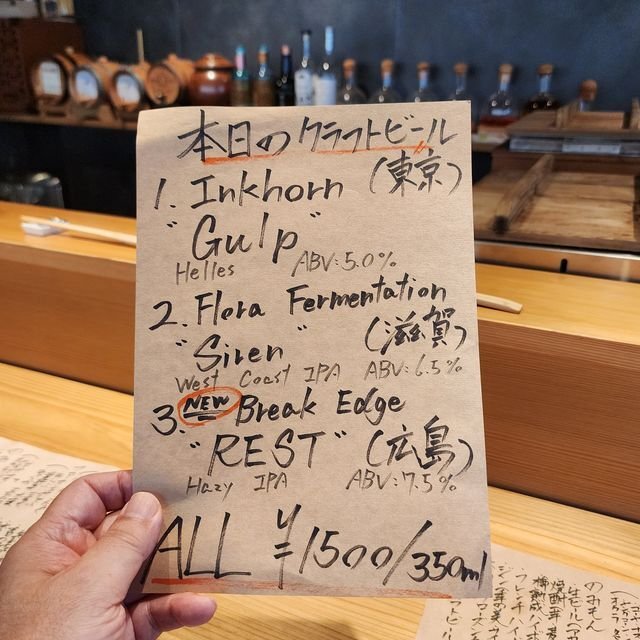 本日のクラフトビール
1. Inkhorn (東京)
"Gulp"
Helles ABV:5.0%
2. Flora Fermentation
"Siren" (滋賀)
West Coast IPA ABV:6.5%
3. NEW Break Edge
"REST" (広島)
Hazy IPA ABV:7.5%
ALL ¥1500/350ml
のみもん